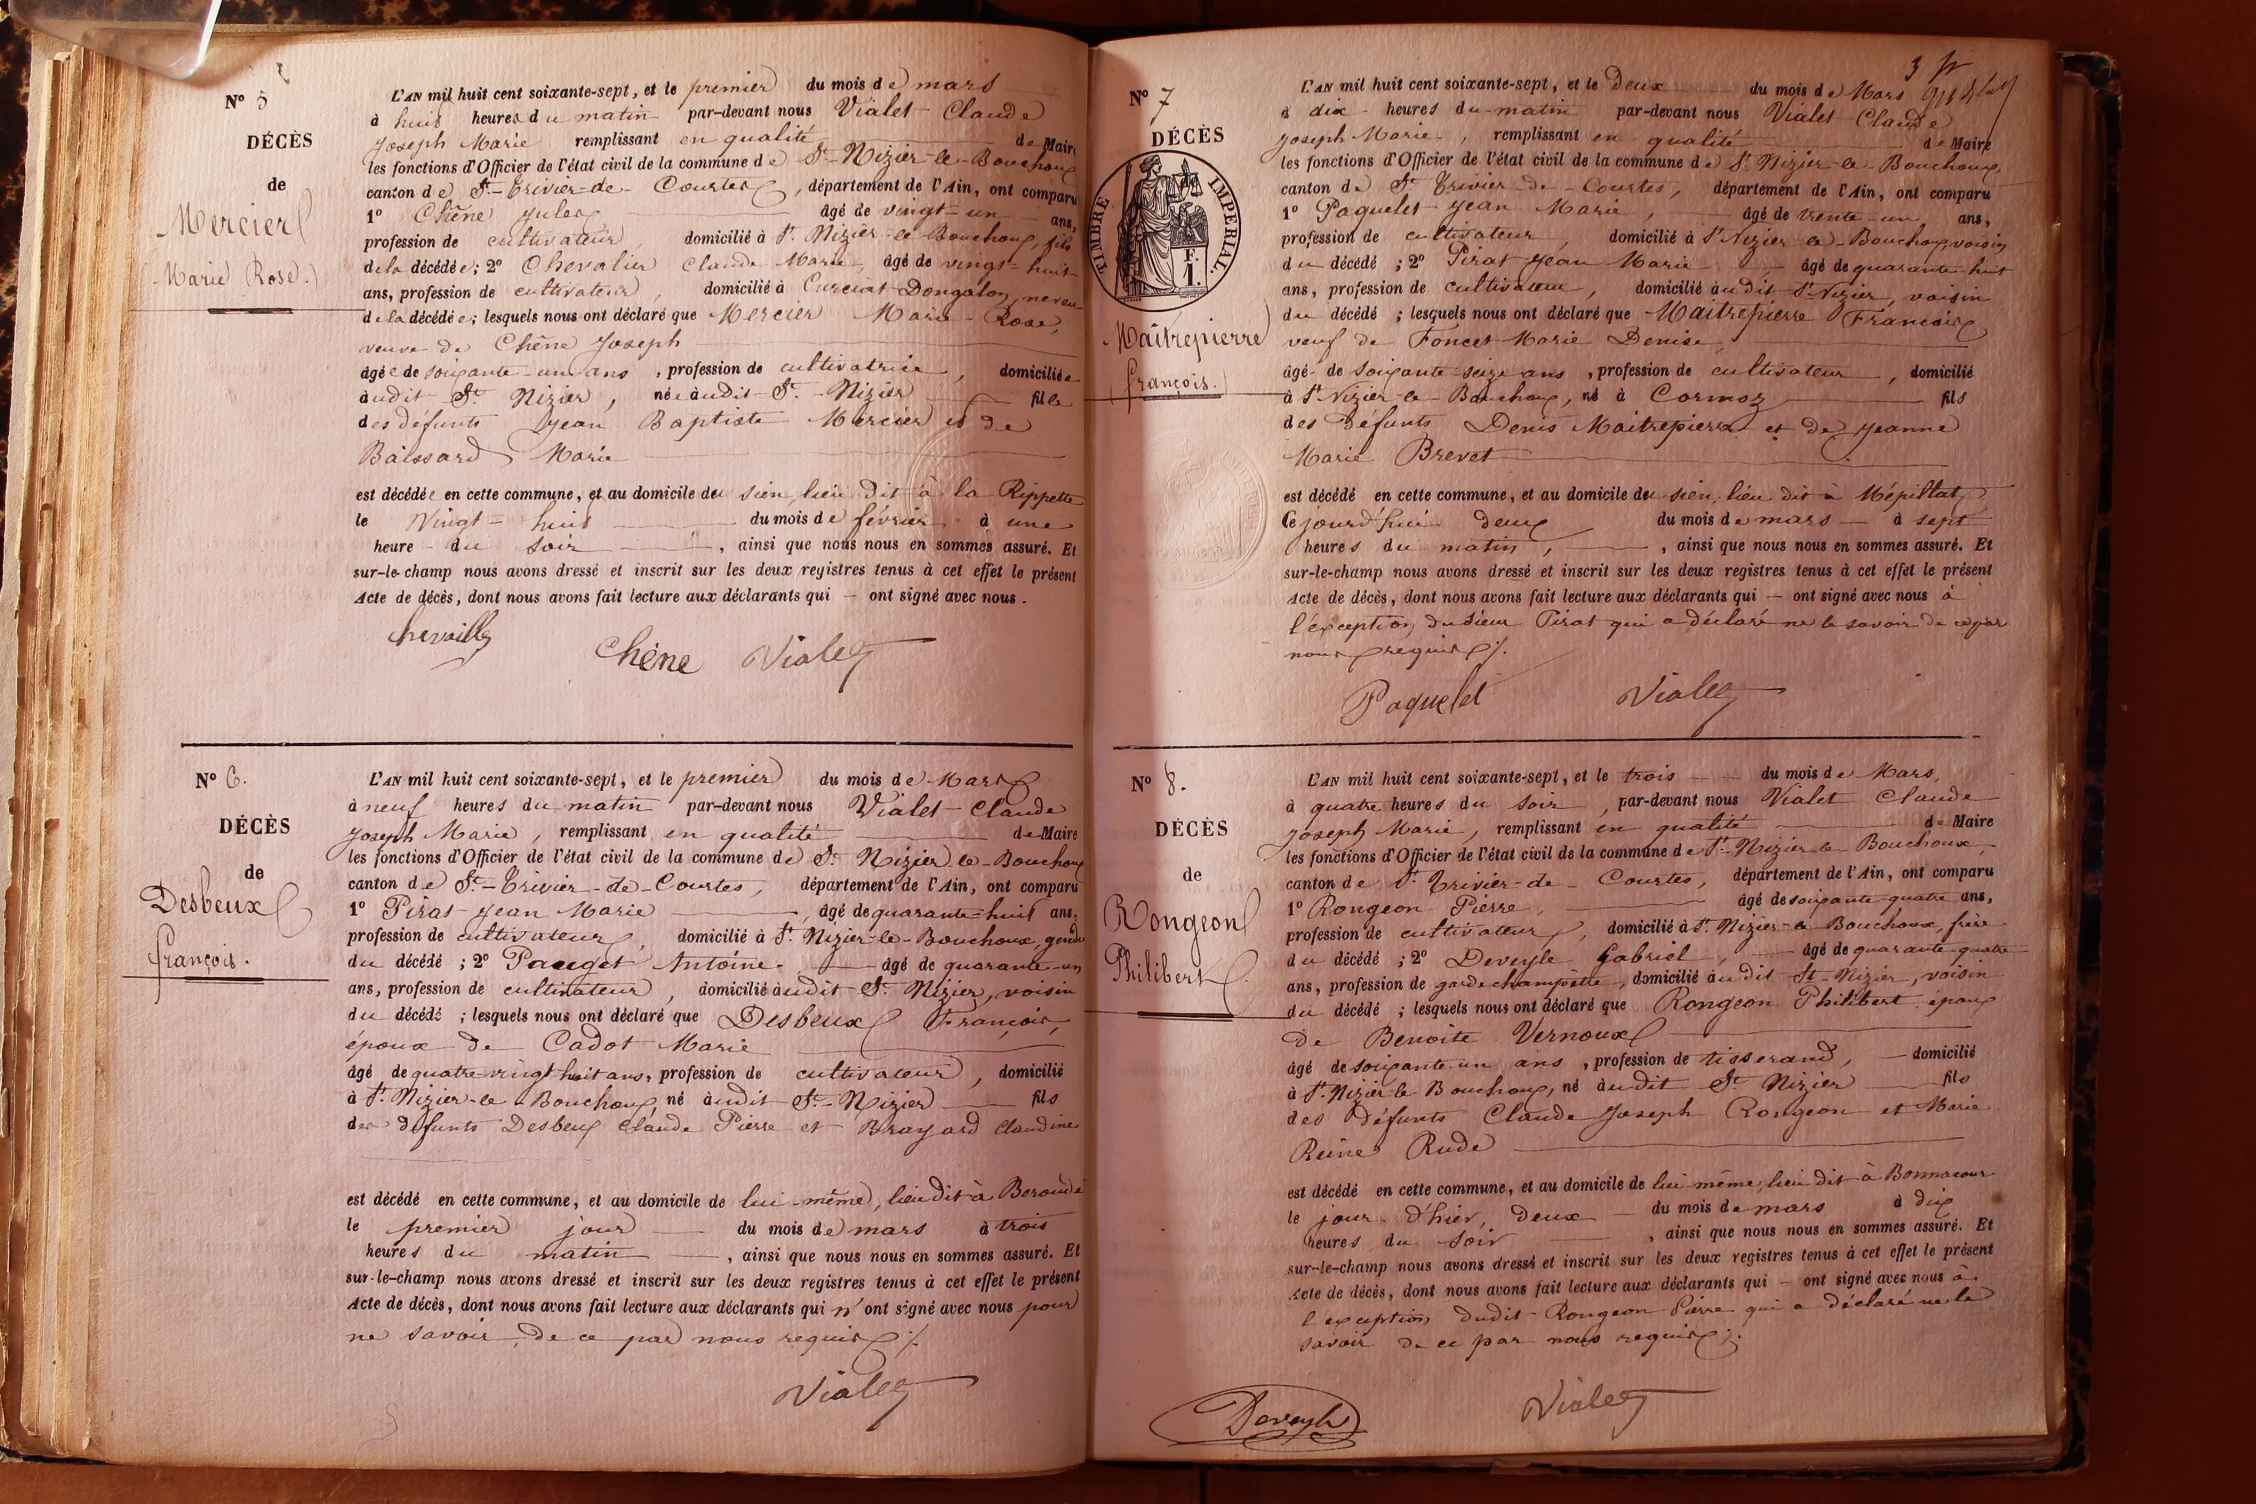 N° 5
DÉCÈS
de
Mercier
(Marie Rose.)
L'AN mil huit cent soixante-sept, et le premier du mois de mars
à huit heures du matin par-devant nous Vialet Claude
Joseph Marie remplissant en qualité de Maire
les fonctions d'Officier de l'état civil de la commune de St-Nizier-le-Bouchoux
canton de St-Trivier-de-Courtes, département de l'Ain, ont comparu
1° Chêne Jules âgé de vingt-un ans,
profession de cultivateur, domicilié à St Nizier-le-Bouchoux, fils
de la décédée; 2° Chevalier Claude Marie, âgé de vingt-huit
ans, profession de cultivateur, domicilié à Curciat Dongalon, neveu
de la décédée; lesquels nous ont déclaré que Mercier Marie-Rose,
veuve de Chêne Joseph
âgée de soixante-un ans, profession de cultivatrice, domiciliée
audit St Nizier, née audit St-Nizier fille
des défunts Jean Baptiste Mercier et de
Baissard Marie
est décédée en cette commune, et au domicile du sien, lieu dit à la Rippette
le vingt-huit du mois de février à une
heure du soir, ainsi que nous nous en sommes assuré. Et
sur-le-champ nous avons dressé et inscrit sur les deux registres tenus à cet effet le présent
Acte de décès, dont nous avons fait lecture aux déclarants qui — ont signé avec nous.
Chêne Vialet
N° 6.
DÉCÈS
de
Desbeux
françois.
L'AN mil huit cent soixante-sept, et le premier du mois de Mars
à neuf heures du matin par-devant nous Vialet Claude
Joseph Marie, remplissant en qualité de Maire
les fonctions d'Officier de l'état civil de la commune de St Nizier le-Bouchoux
canton de St-Trivier-de-Courtes, département de l'Ain, ont comparu
1° Pirat Jean Marie, âgé de quarante-huit ans,
profession de cultivateur, domicilié à St Nizier-le-Bouchoux, gendre
du décédé; 2° Pauget Antoine. âgé de quarante-un
ans, profession de cultivateur, domicilié audit St Nizier, voisin
du décédé; lesquels nous ont déclaré que Desbeux François,
époux de Cadot Marie
âgé de quatre-vingt huit ans, profession de cultivateur, domicilié
à St Nizier-le-Bouchoux, né audit St-Nizier fils
des défunts Desbeux Claude Pierre et Brayard Claudine
est décédé en cette commune, et au domicile de lui-même, lieu dit à
le premier jour du mois de mars à trois
heures du matin, ainsi que nous nous en sommes assuré. Et
sur-le-champ nous avons dressé et inscrit sur les deux registres tenus à cet effet le présent
Acte de décès, dont nous avons fait lecture aux déclarants qui n'ont signé avec nous pour
ne savoir, de ce par nous requis ./.
Vialet
3
N° 7
DÉCÈS
TIMBRE IMPÉRIAL.
F.
1.
Maîtrepierre
françois.
L'AN mil huit cent soixante-sept, et le Deux du mois de Mars
à dix heures du matin par-devant nous Vialet Claude
Joseph Marie, remplissant en qualité de Maire
les fonctions d'Officier de l'état civil de la commune de St Nizier-le Bouchoux,
canton de St Trivier-de-Courtes, département de l'Ain, ont comparu
1° Paquelet Jean Marie, âgé de trente-un ans,
profession de cultivateur, domicilié à St Nizier le-Bouchoux voisin
du décédé; 2° Pirat Jean Marie âgé de quarante huit
ans, profession de cultivateur, domicilié audit St Nizier, voisin
du décédé; lesquels nous ont déclaré que Maitrepierre François
veuf de Foncet Marie Denise,
âgé de soixante-seize ans, profession de cultivateur, domicilié
à St Nizier-le-Bouchoux, né à Cormoz fils
des défunts Denis Maitrepierre et de Jeanne
Marie Brevet
est décédé en cette commune, et au domicile du sien, lieu dit à Mépillat,
Ce jourd'hui deux du mois de mars à sept
heures du matin, ainsi que nous nous en sommes assuré. Et
sur-le-champ nous avons dressé et inscrit sur les deux registres tenus à cet effet le présent
Acte de décès, dont nous avons fait lecture aux déclarants qui — ont signé avec nous à
l'exception du sieur Pirat qui a déclaré ne le savoir de ce par
nous requis ./.
Paquelet Vialet
N° 8.
DÉCÈS
de
Rongeon
Philibert.
L'AN mil huit cent soixante-sept, et le trois du mois de Mars,
à quatre heures du soir, par-devant nous Vialet Claude
Joseph Marie, remplissant en qualité de Maire
les fonctions d'Officier de l'état civil de la commune de St-Nizier-le-Bouchoux,
canton de St Trivier-de-Courtes, département de l'Ain, ont comparu
1° Rongeon Pierre, âgé de soixante-quatre ans,
profession de cultivateur, domicilié à St Nizier-le Bouchoux, frère
du décédé; 2° Deveyle Gabriel, âgé de quarante-quatre
ans, profession de garde champêtre, domicilié audit St-Nizier, voisin
du décédé; lesquels nous ont déclaré que Rongeon Philibert époux
de Benoite Vernoux
âgé de soixante un ans, profession de tisserand, domicilié
à St Nizier le Bouchoux, né audit St Nizier fils
des défunts Claude Joseph Rongeon et Marie
Reine Rude
est décédé en cette commune, et au domicile de lui même, lieu dit à Bonnacour
le jour d'hier, deux du mois de mars à dix
heures du soir, ainsi que nous nous en sommes assuré. Et
sur-le-champ nous avons dressé et inscrit sur les deux registres tenus à cet effet le présent
Acte de décès, dont nous avons fait lecture aux déclarants qui — ont signé avec nous à
l'exception dudit Rongeon Pierre qui a déclaré ne le
savoir de ce par nous requis ./.
Deveyle Vialet